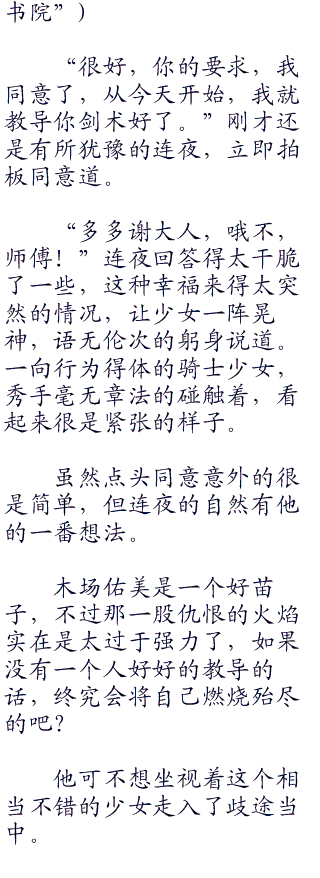 书院”）
“很好，你的要求，我
同意了，从今天开始，我就
教导你剑术好了。”刚才还
是有所犹豫的连夜，立即拍
板同意道。
“多多谢大人，哦不，
师傅！”连夜回答得太干脆
了一些，这种幸福来得太突
然的情况，让少女一阵晃
神，语无伦次的躬身说道。
一向行为得体的骑士少女，
秀手毫无章法的碰触着，看
起来很是紧张的样子。
虽然点头同意意外的很
是简单，但连夜的自然有他
的一番想法。
木场佑美是一个好苗
子，不过那一股仇恨的火焰
实在是太过于强力了，如果
没有一个人好好的教导的
话，终究会将自己燃烧殆尽
的吧？
他可不想坐视着这个相
当不错的少女走入了歧途当
中。